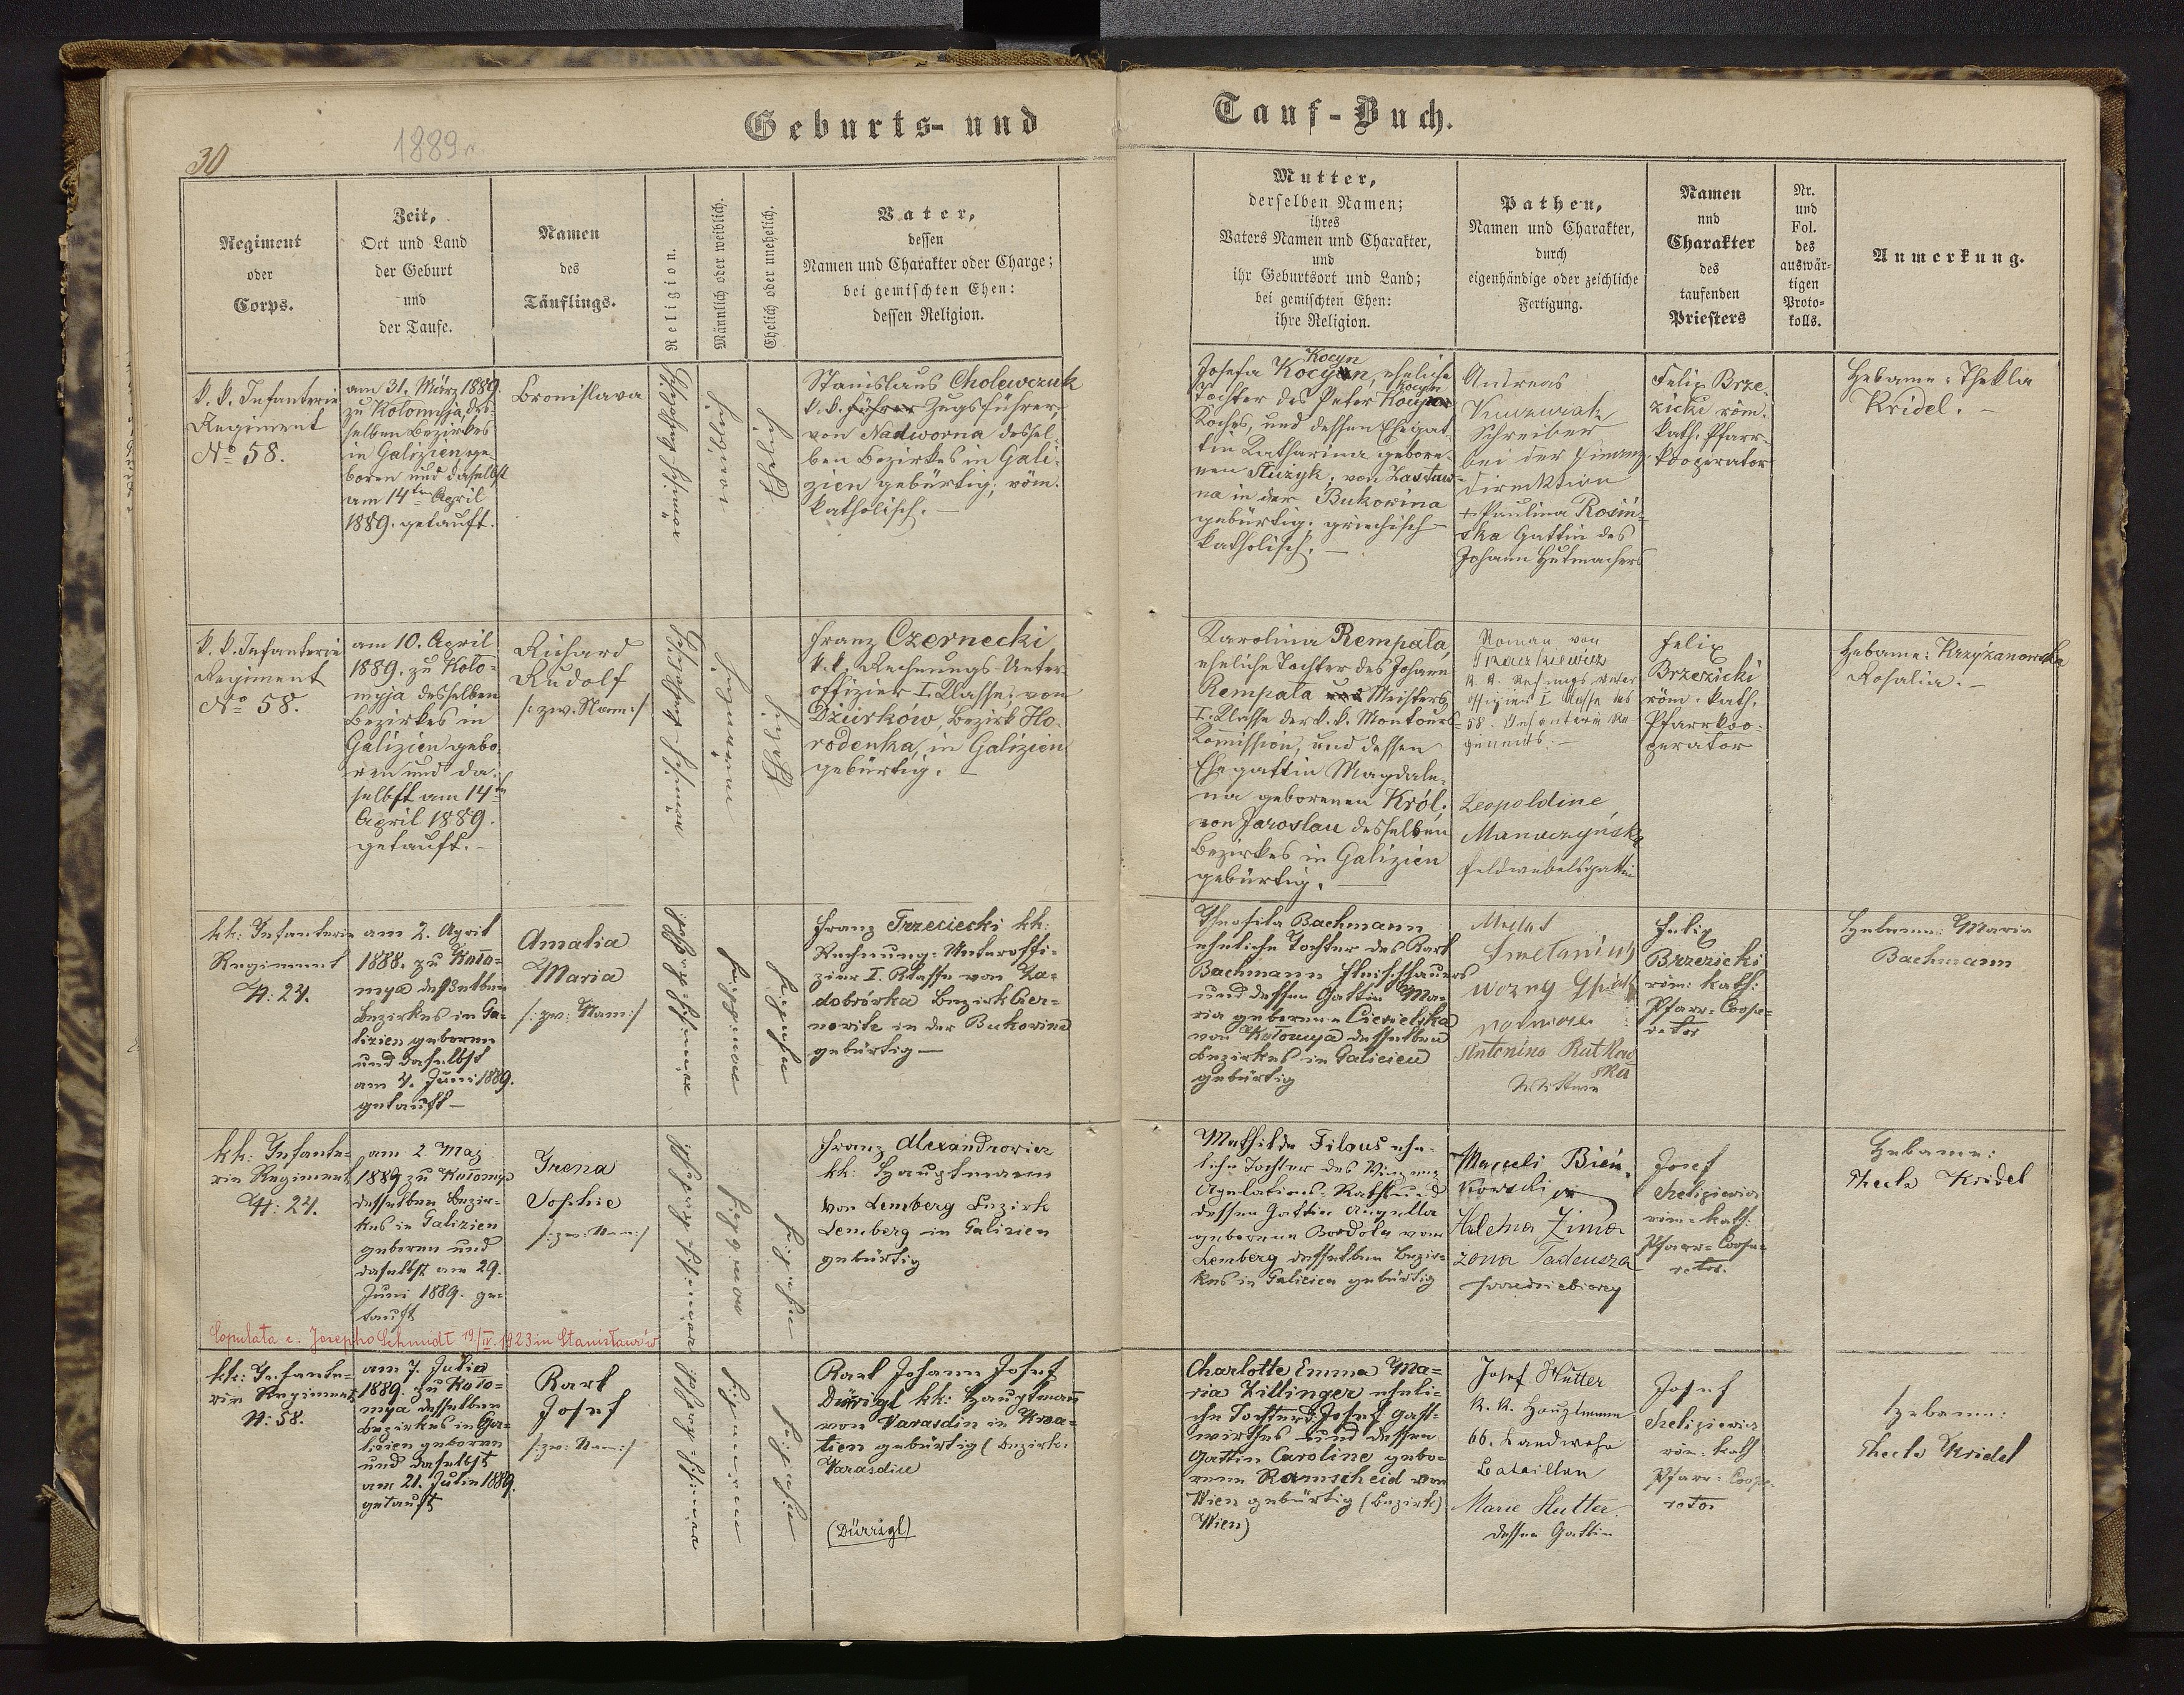 30
1889
Geburts- und
Tauf-Buch.
Regiment
oder
Corps.
Zeit,
Ort und Land
der Geburt
und
der Taufe.
Namen
des
Täuflings.
Religion.
Männlich oder weiblich.
Ehelich oder unehelich.
Vater,
dessen
Namen und Charakter oder Charge;
bei gemischten Ehen:
dessen Religion.
Mutter,
derselben Namen;
ihres
Vaters Namen und Charakter,
und
ihr Geburtsort und Land;
bei gemischten Ehen:
ihre Religion.
Pathen,
Namen und Charakter,
durch
eigenhändige oder zeichliche
Fertigung.
Namen
und
Charakter
des
taufenden
Priesters
Nr.
und
Fol.
des
auswär-
tigen
Proto-
kolls.
Anmerkung.
k. k. Infanterie
Regiment
No 58.
am 31. März 1889
zu Kołomyja, des-
selben Bezirkes
in Galizien ge-
boren und daselbst
am 14ten April
1889. getauft.
Bronislava
Stanislaus Cholewczuk
k. k. Führer Zugsführer,
von Nadworna dessel-
ben Bezirkes in Gali-
zien gebürtig, röm.
katholisch. –
Kocyn
Josefa eheliche
Kocyn
Tochter des Peter
Koches, und dessen Ehegat-
tin Katharina gebore-
nen Służyk, von Zastaw-
na in der Bukowina
gebürtig. griechisch-
katholisch. –
Andreas
Schreiber
bei der Finanz-
direktion
+ Paulina Rosin-
ska Gattin des
Johann Hutmachers
Felix Brze-
zicki röm.
kath. Pfarr-
kooperator
Hebame: Thekla
Kridel. –
k. k. Infanterie
Regiment
No 58.
am 10. April
1889. zu Koło-
myja desselben
Bezirkes in
Galizien gebo-
ren und da-
selbst am 14ten
April 1889.
getauft. –
Richard
Rudolf
/: zw. Nam :/
Franz Czernecki
k. k. Rechnungs-Unter-
offizier I. Klasse, von
Dżurków, Bezirk Ho-
rodenka, in Galizien
gebürtig. –
Karolina Rempała,
eheliche Tochter des Johann
Rempała und Meisters
I. Klasse der k. k. Monturs-
Kommission, und dessen
Ehegattin Magdale-
na geborenen Król,
von Jaroslau desselben
Bezirkes in Galizien
gebürtig. –
Roman von
k. k. Rechnungs Unter
offizier I Klasse des
58. Infanterie Re-
giments. –
Leopoldine
Feldwebelsgattin
Felix
Brzezicki
röm. kath.
Pfarrkoo-
perator
Hebame: Krzyżanowska
Rosalia. –
kk: Infanterie
Regiment
N: 24.
am 2. April
1888. zu Koło-
mya desselben
Bezirkes in Ga-
lizien geboren
und daselbst
am 4. Juni 1889.
getauft –
Amalia
Maria
/: zw: Nam :/
Franz Trzeciecki kk:
Rechnung: Unteroffi-
zier I. Klasse von Za-
dobrówka Bezirk Czer-
nowitz in der Bukowina
gebürtig –
Theofila Bachmann
eheliche Tochter des Karl
Bachmann Fleischhauers
und dessen Gattin Ma-
ria geborene Ciesielska
von Kołomya desselben
Bezirkes in Galicien
gebürtig
Antonina Rutkow
ska
Wittwe
Felix
Brzezicki
röm: kath:
Pfarr-Coope-
rator
Hebame: Maria
Bachmann
kk: Infante-
rie Regiment
N: 24.
am 2 Maj
1889 zu Kołomya
desselben Bezir-
kes in Galizien
geboren und
daselbst am 29.
Juni 1889. ge-
tauft
Irena
Sophie
/: zw: Nam :/
Franz Alexandrowicz
kk: Hauptmann
von Lemberg Bezirk
Lemberg in Galizien
gebürtig
Mathilde Filous ehe-
liche Tochter des Vinzenz
dessen Gattin
geborene von
Lemberg desselben Bezir-
kes in Galicien gebürtig
Helena
żona Tadeusza
Josef
röm: kath:
Pfarr-Coope-
rator.
Hebame:
Thecla Kridel
Copulata c. Josepho Schmidt 19/IV. 1923 in Stanisławów
kk: Infante-
rie Regiment
N: 58.
am 7. Julia
1889. zu Koło-
mya desselben
Bezirkes in Ga-
lizien geboren
und daselbst
am 21. Julia 1889.
getauft
Karl
Josef
/: zw: Nam :/
Karl Johann Josef
Dürrigl kk: Hauptmann
von Varasdin in Kroa-
tien gebürtig (Bezirk:
Varasdin
(Dürrigl)
Charlotte Emma Ma-
ria Zillinger eheli-
che Tochter d. Josef Gast-
wirthes und dessen
Gattin Caroline gebo-
rene Ramscheid von
Wien gebürtig (Bezirk)
Wien)
Josef Hutter
K. K. Hauptmann
66. Landwehr
Bataillon
Marie Hutter.
dessen Gattin
Josef
röm: kath
Pfarr-Coope-
rator
Hebame:
Thecla Kridel